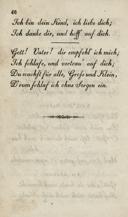 46
Ich bin dein Kind, ich liebe dich;
Ich danke dir, und hoff' auf dich.
Gott! Vater! dir empfehl' ich mich;
Ich schlafe, und vertrau' auf dich;
Du wachst für alle, Groß und Klein,
D'rum schlaf' ich ohne Sorgen ein.